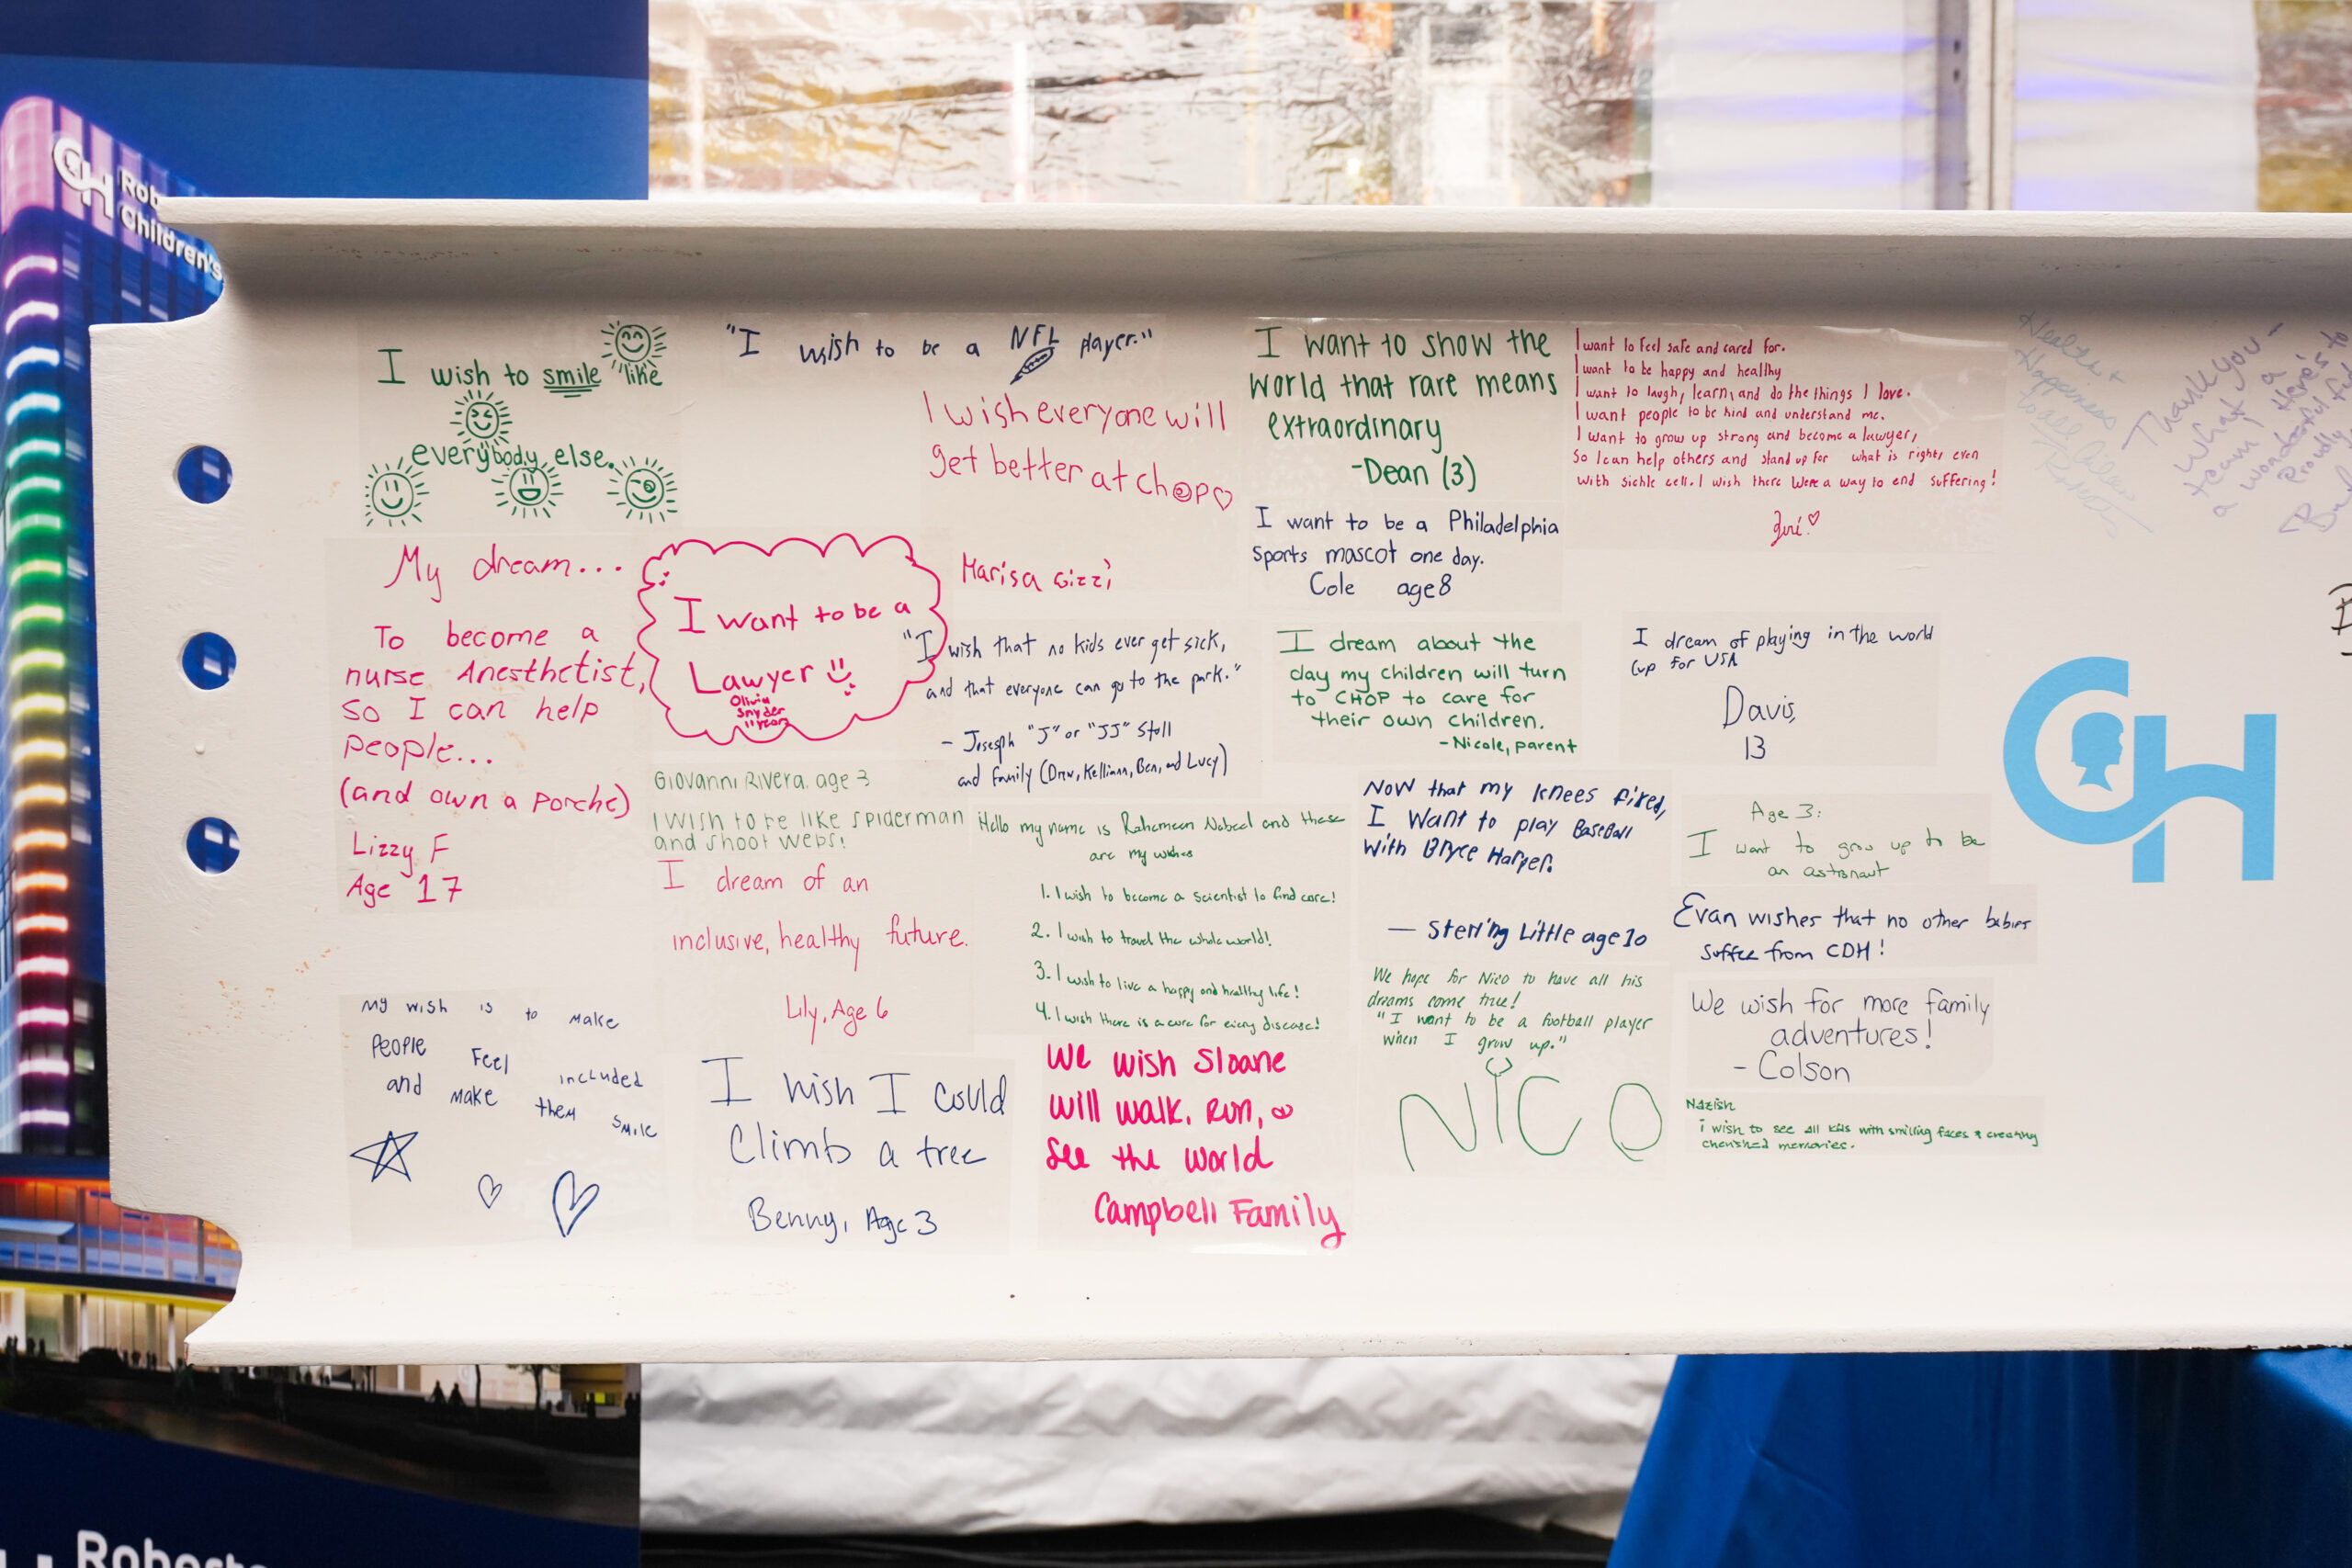 CH Rob
Children's
I wish to smile like
everybody else.
"I wish to be a NFL player."
I wish everyone will
get better at chop
Marisa Gizzi
I want to show the
world that rare means
extraordinary
-Dean (3)
I want to feel safe and cared for.
I want to be happy and healthy
I want to laugh, learn, and do the things I love.
I want people to be kind and understand me.
I want to grow up strong and become a lawyer,
So I can help others and stand up for what is right, even
with sickle cell. I wish there were a way to end suffering!
Health +
Happiness
to all
Thank you -
What a
team! Here's to
a wonderful
Proudly
I want to be a Philadelphia
Sports mascot one day.
Cole age 8
My dream...
To become a
nurse Anesthetist,
so I can help
people...
(and own a porche)
Lizzy F
Age 17
I want to be a
Lawyer
Olivia
Snyder
11 years
"I wish that no kids ever get sick,
and that everyone can go to the park."
- Joseph "J" or "JJ" Stoll
and family (Drew, Kelliann, Ben, and Lucy)
I dream about the
day my children will turn
to CHOP to care for
their own children.
-Nicole, parent
I dream of playing in the world
cup for USA
Davis,
13
Giovanni Rivera, age 3
I wish to be like spiderman
and shoot webs!
Hello my name is Rahemeen Nabeel and these
are my wishes
1. I wish to become a scientist to find cure!
2. I wish to travel the whole world!
3. I wish to live a happy and healthy life!
4. I wish there is a cure for every disease!
Now that my knees fixed,
I want to play Baseball
with Bryce Harper.
— Sterling Little age 10
Age 3:
I want to grow up to be
an astronaut
I dream of an
inclusive, healthy future.
Lily, Age 6
Evan wishes that no other babies
suffer from CDH!
We hope for Nico to have all his
dreams come true!
"I want to be a football player
when I grow up."
NICO
We wish for more family
adventures!
- Colson
My wish is to make
People Feel included
and make them smile
I wish I could
Climb a tree
Benny, Age 3
We wish Sloane
will walk, run, &
see the world
Campbell Family
Nazish
i wish to see all kids with smiling faces & creating
cherished memories.
CH
Roberts